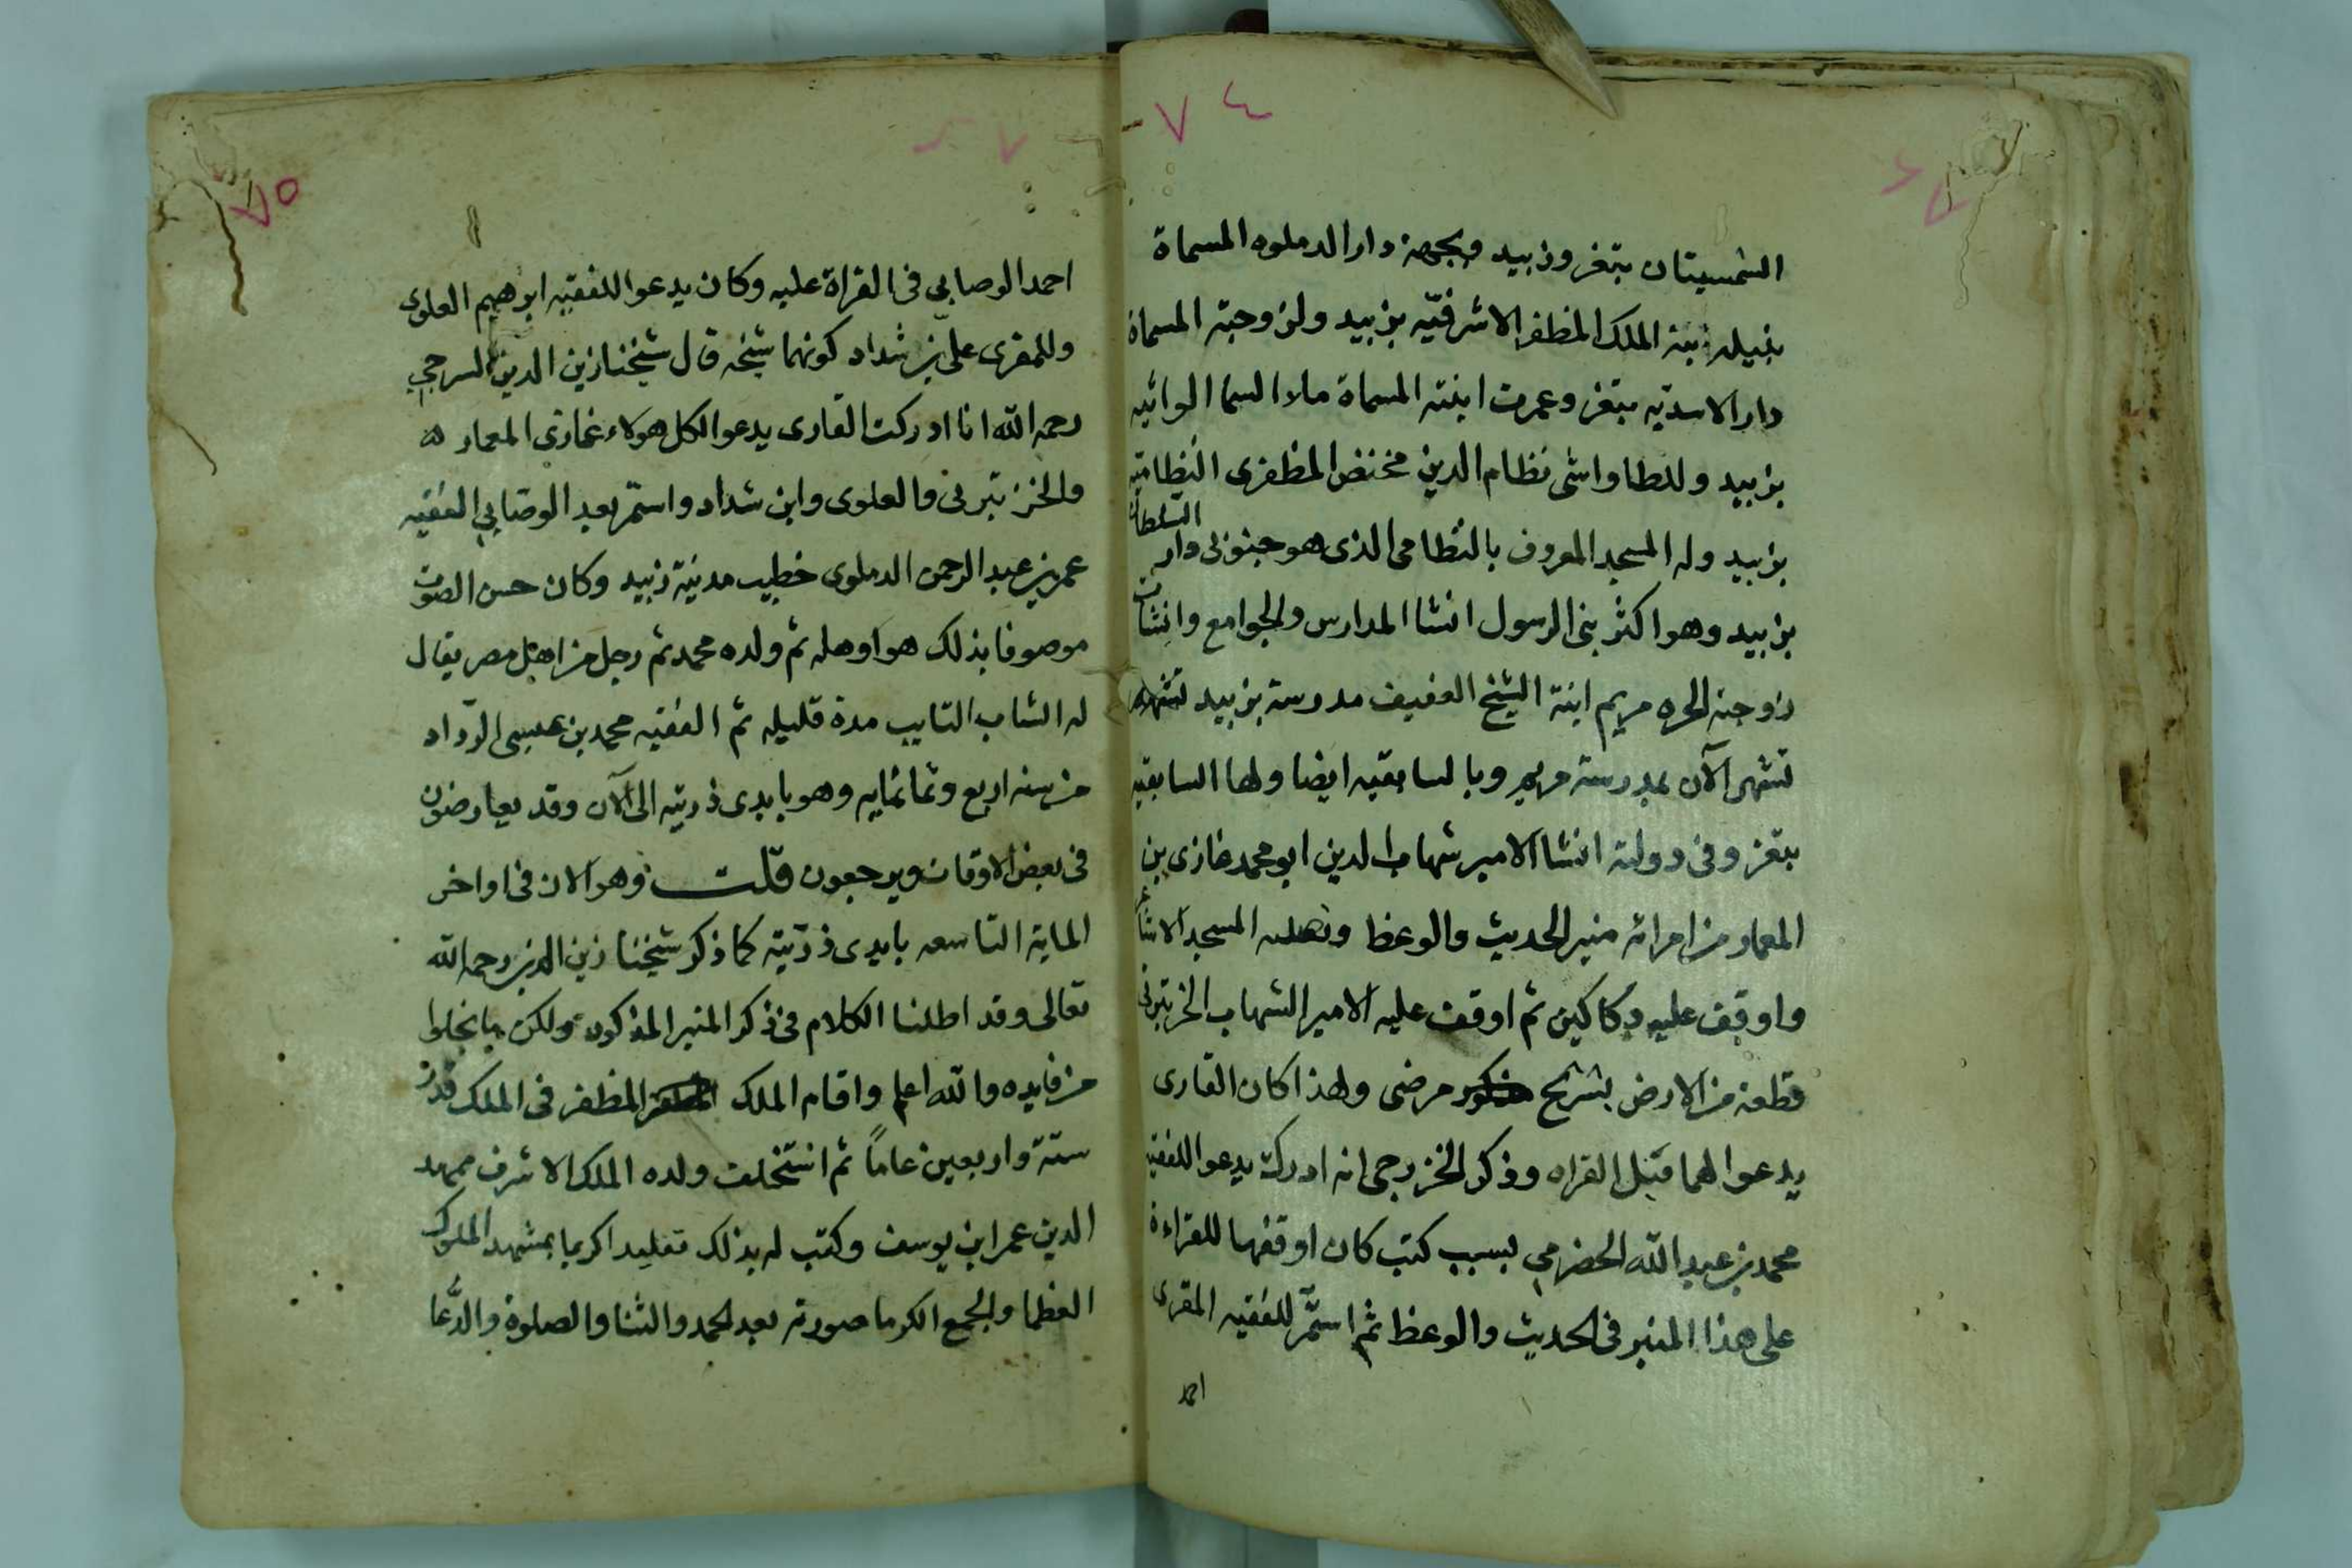 ٧٤
الشمسيتان بتعز وزبيد وبجهة دار الدملوه المسماة
بنبيله ابنة الملك المظفر الاشرفيه بزبيد ولزوجته المسماة
دار الاسديه بتعز وعمرت ابنته المسماة ماء السما الواثيه
بزبيد وللطواشى نظام الدين مختص المظفرى النظاميه
بزبيد وله المسجد المعروف بالنظامى الذى هو جنوبى دار السلطان
بزبيد وهو اكثر بنى الرسول انشا المدارس والجوامع وانشات
زوجته الحره مريم ابنة الشيخ العفيف مدرسة بزبيد
تشتهر الآن بمدرسة مريم وبالسابقيه ايضا ولها السابقيه
بتعز وفى دولته انشا الامير شهاب الدين ابو محمد غازى بن
المعمار من امرائه منبر الحديث والوعظ المسجد الاشاعر
واوقف عليه دكاكين ثم اوقف عليه الامير الشهاب الخرتبرتى
قطعة من الارض بشريح مرضى ولهذا كان القارى
يدعوا لهما قبل القراه وذكر الخزرجى انه ادركه يدعوا للفقيه
محمد بن عبد الله الحضرمي بسبب كتب كان اوقفها للقراءة
على هذا المنبر فى الحديث والوعظ ثم استمر للفقيه المقرى
احمد
٧٥
احمد الوصابي فى القراة عليه وكان يدعوا للفقيه ابرهيم العلوى
وللمقرى على بن شداد كونهما شيخه قال شيخنا زين الدين الشرجي
رحمه الله انا ادركت القارى يدعوا لكل هولاء غازى المعمار
والخرتبرتى والعلوى وابن شداد واستمر بعد الوصابي الفقيه
عمر بن عبد الرحمن الدملوى خطيب مدينة زبيد وكان حسن الصوت
موصوفا بذلك هو اوهله ثم ولده محمد ثم رجل من اهل مصر يقال
له الشاب التايب مدة قليله ثم الفقيه محمد بن عيسى الرداد
من سنه اربع وثمانمايه وهو بايدى ذريته الى الآن وقد يعارضون
فى بعض الاوقات ويرجعون قلت وهو الان فى اواخر
الماية التاسعه بايدى ذريته كما ذكر شيخنا زين الدين رحمه الله
تعالى وقد اطلنا الكلام فى ذكر المنبر المذكور ولكن ما يخلوا
من فايده والله اعلم واقام الملك المظفر فى الملك قدر
ستة واربعين عاماً ثم استخلف ولده الملك الاشرف ممهد
الدين عمر ابن يوسف وكتب له بذلك تقليدا كريما بمشهد الملوك
العظما والجمع الكرما صورته بعد الحمد والثنا والصلوة والدعا